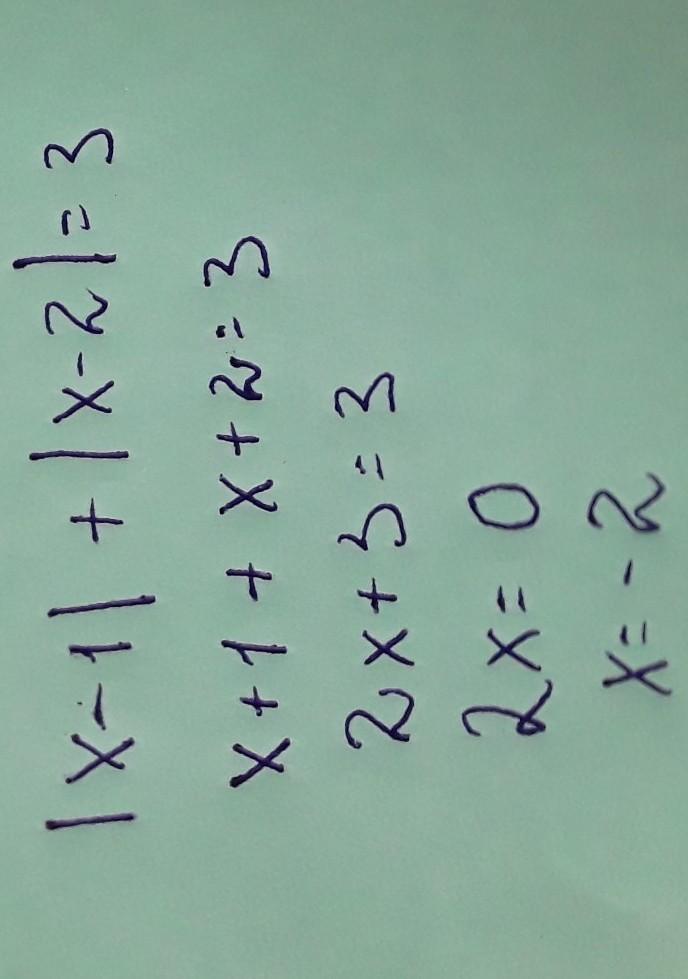 |x-1| + |x-2| = 3
x+1 + x+2 = 3
2x+3 = 3
2x = 0
x = -2